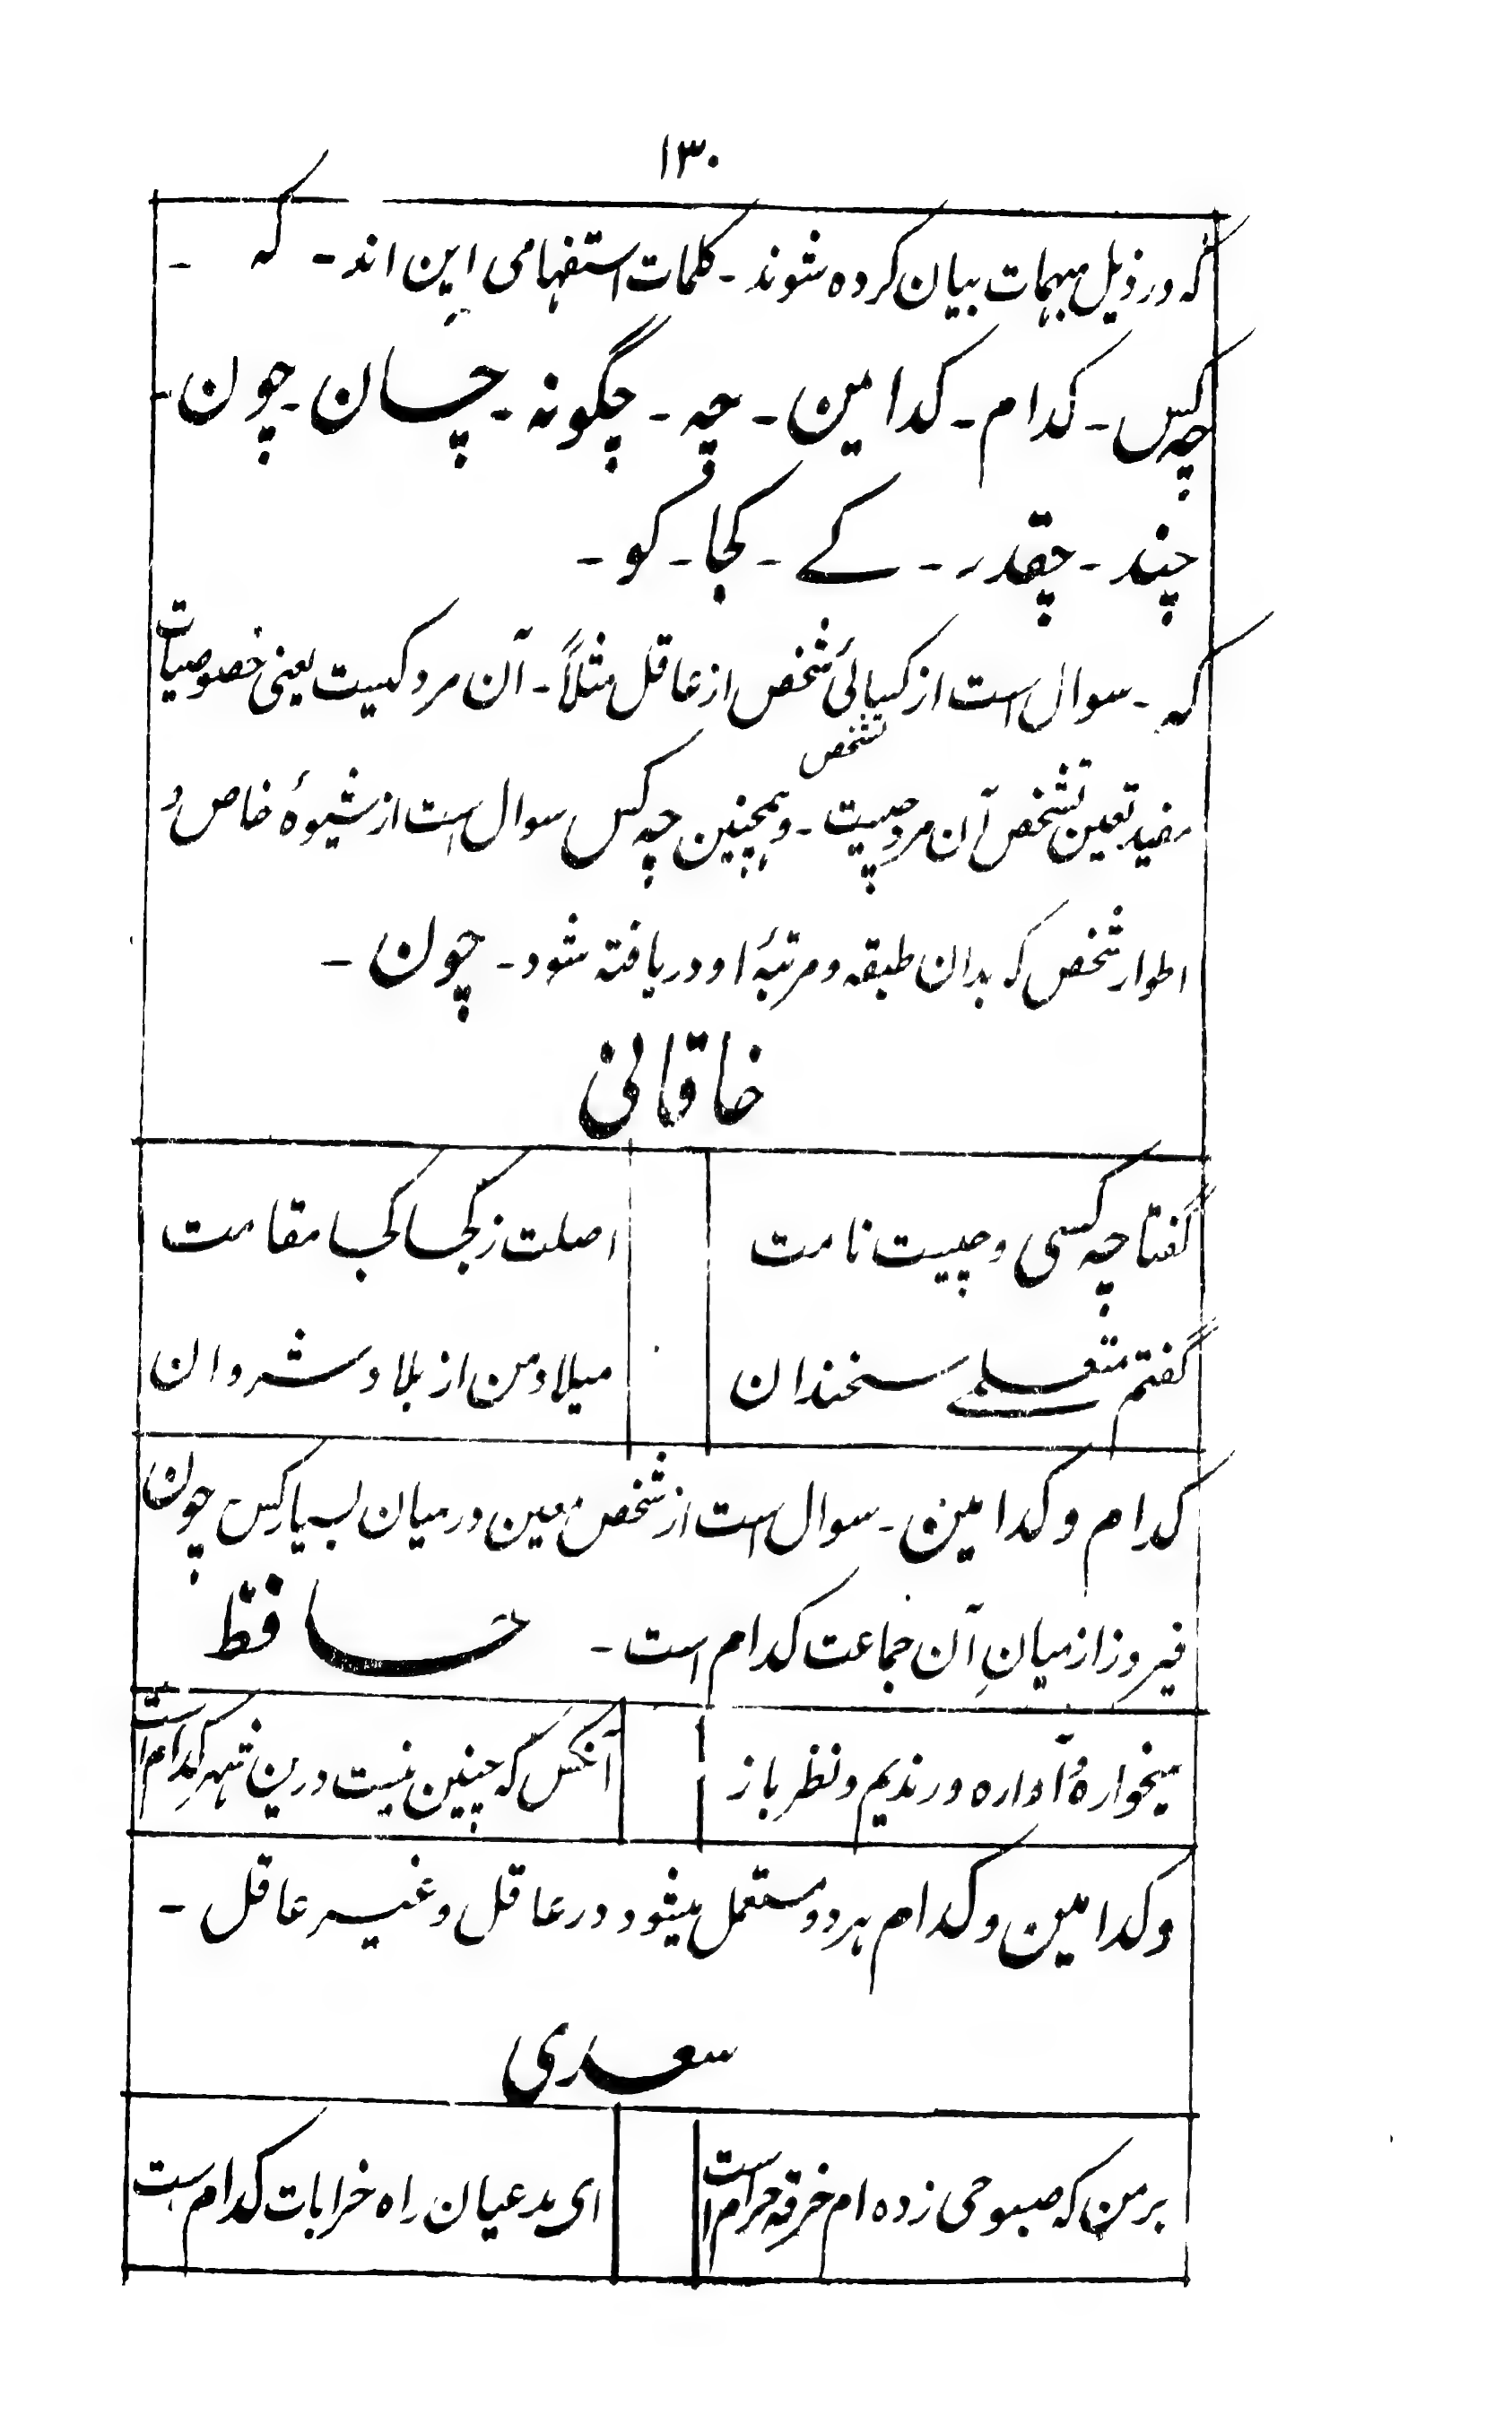 ۱۳۰
که در ذیل مبهمات بیان کرده شوند - کلمات استفهامی اینِ اند - که -
چه کس - کدام - کدامین - چه - چگونه - چسان - چون -
چند - چقدر - کے - کجا - کو -
که - سوال است از کیائی شخص از عاقل مثلاً - آن مرد کیست یعنی خصوصیات
تشخص
مفید تعین تشخص آن مرد چیست - و همچنین چه کس سوال است از شیوهٔ خاص و
اطوار شخص که بدان طبقه و مرتبهٔ او دریافته شود - چون -
خاقانی
گفتا چه کسی و چیست نامت اصلت ز کجا کجا مقامت
گفتم متعلمے سخندان میلاد من از بلاد شروان
کدام و کدامین - سوال است از شخص معین در میان بسیار کس چون
فیروز از میانِ آن جماعت کدام است - حافظ
میخوارهٔ آواره و رندیم و نظر باز آنکس که چنین نیست درین شهر کدام است
و کدامین و کدام هر دو مستعمل میشود در عاقل و غیر عاقل -
سعدی
بر من که صبوحی زده ام خرقه حرام است ای مدعیان راه خرابات کدام است